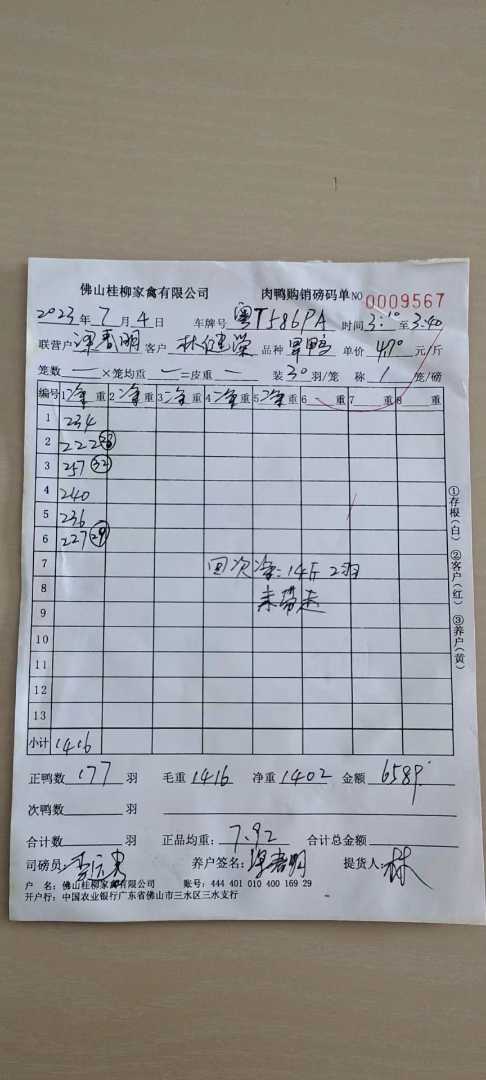 佛山桂柳家禽有限公司 肉鸭购销磅码单 NO 0009567
2023年7月4日 车牌号 粤T5869A 时间 3:10 至 3:40
联营户 谭春明 客户 林健荣 品种 旱鸭 单价 4.70 元/斤
笼数 — ×笼均重 — =皮重 — 装 30 羽/笼 称 1 笼/磅
编号 1净重 2净重 3净重 4净重 5净重 6 重 7 重 8 重
1 234
2 222 28
3 257 32
4 240
5 236
6 227 29
7 回次净:14斤 2羽
8 未带走
9
10
11
12
13
小计 1416
①存根(白) ②客户(红) ③养户(黄)
正鸭数 177 羽 毛重 1416 净重 1402 金额 6589
次鸭数 羽
合计数 羽 正品均重: 7.92 合计总金额
司磅员: 养户签名: 谭春明 提货人: 林
户 名: 佛山桂柳家禽有限公司 账号: 444 401 010 400 169 29
开户行: 中国农业银行广东省佛山市三水区三水支行